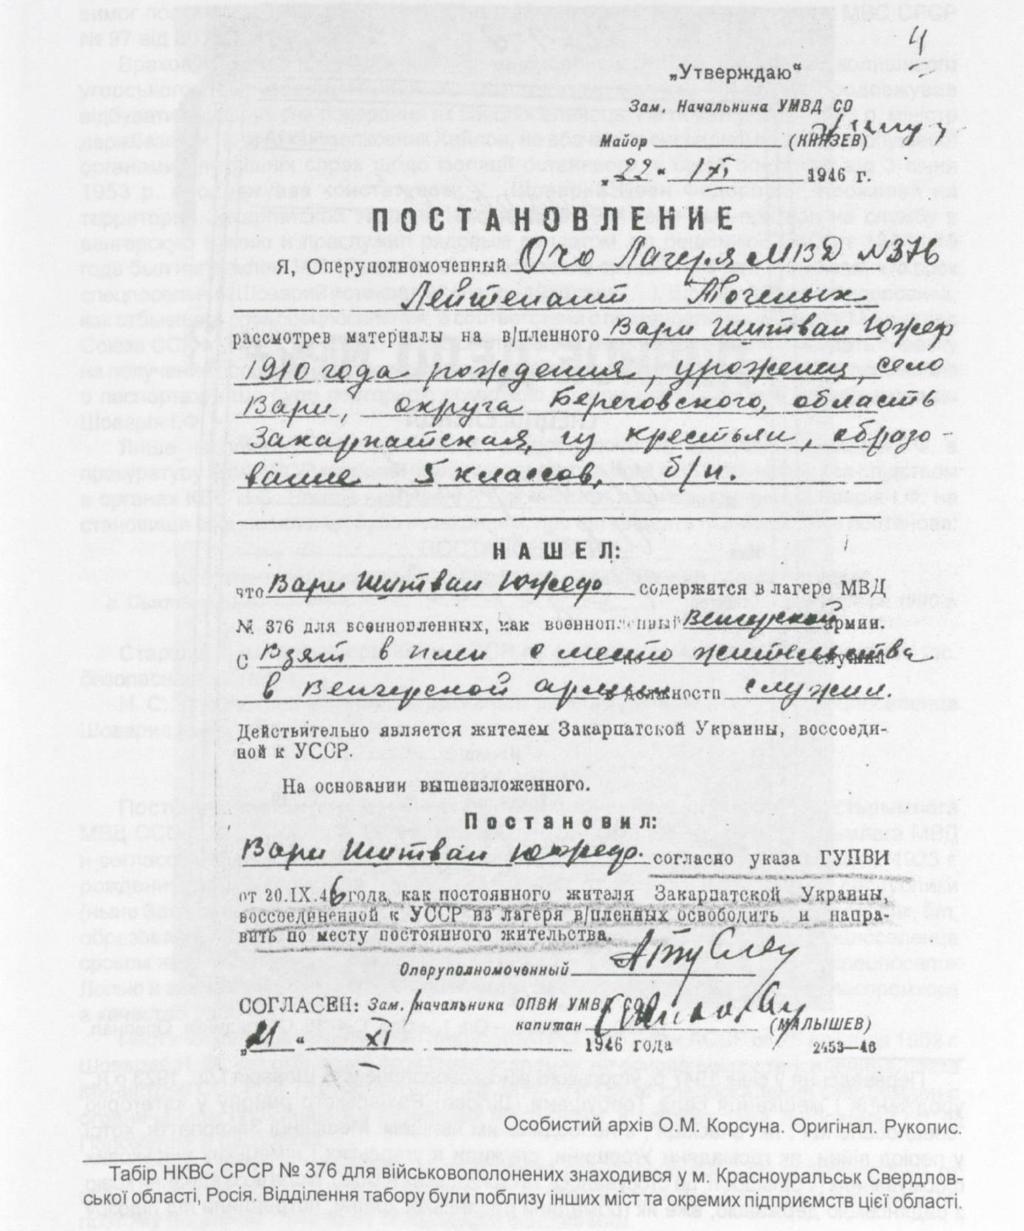 4
„Утверждаю“
Зам. Начальника УМВД СО
Майор (КНЯЗЕВ)
„22“ XI 1946 г.
ПОСТАНОВЛЕНИЕ
Я, Оперуполномоченный Лагеря МВД №376
Лейтенант
рассмотрев материалы на в/пленного Вари Иштван
1910 года рождения, урожения, село
Вари, округа Береговского, область
Закарпатская, из крестьян, образо
вание 5 классов, б/п.
НАШЕЛ:
что Вари Иштван содержится в лагере МВД
№ 376 для военнопленных, как военнопленный Венгерской армии.
С Взят в плен с место жительства
в Венгерской армии служил.
Действительно является жителем Закарпатской Украины, воссоеди-
ной к УССР.
На основании вышеизложенного.
Постановил:
Вари Иштван согласно указа ГУПВИ
от 20.IX.46 года, как постоянного жителя Закарпатской Украины,
воссоедененной к УССР из лагеря в/пленных освободить и напра-
вить по месту постоянного жительства.
Оперуполномоченный
СОГЛАСЕН: Зам. начальника ОПВИ УМВД СО
капитан (МАЛЫШЕВ)
„21“ XI 1946 года 2453—46
Особистий архів О.М. Корсуна. Оригінал. Рукопис.
Табір НКВС СРСР № 376 для військовополонених знаходився у м. Красноуральськ Свердлов-
ської області, Росія. Відділення табору були поблизу інших міст та окремих підприємств цієї області.